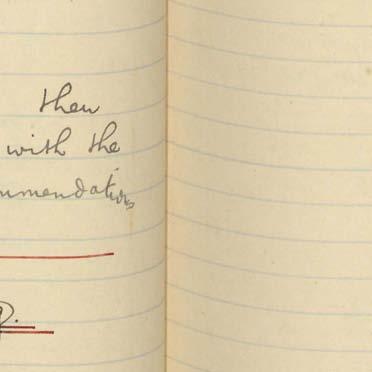 then
with the
mmendations